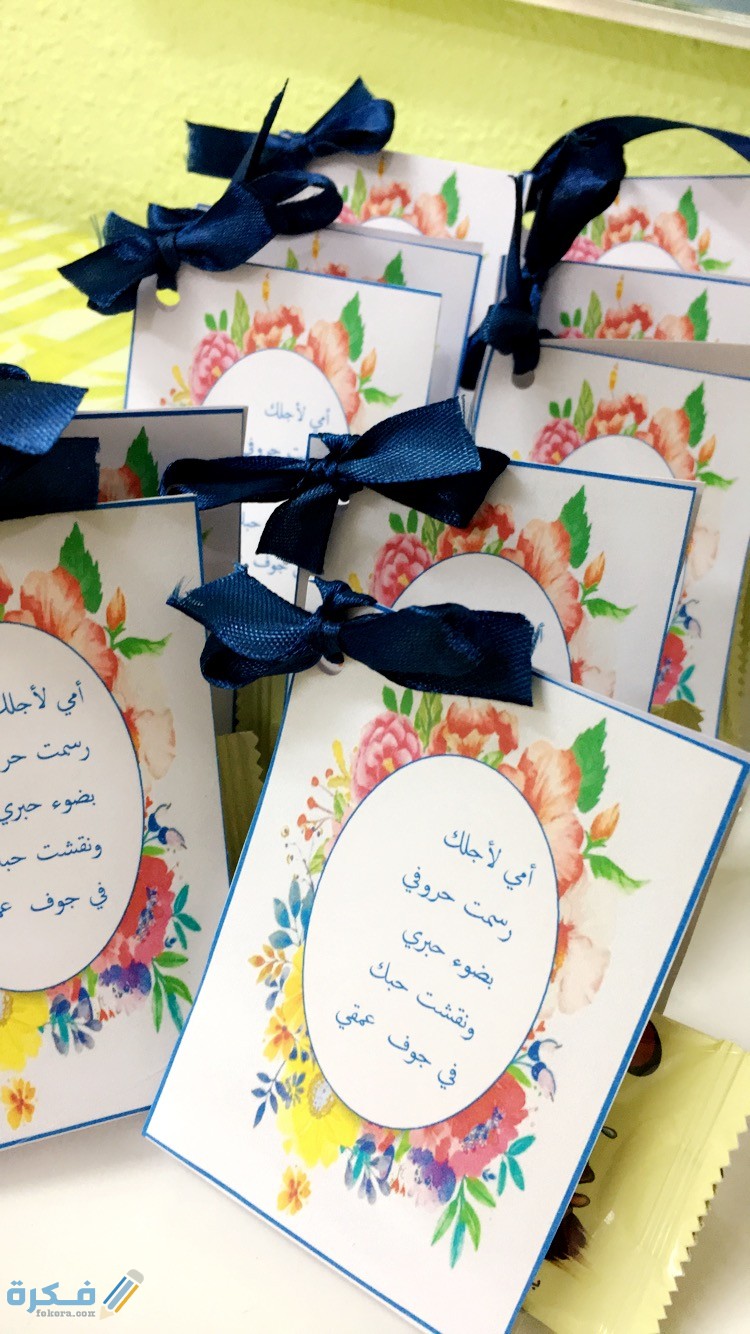 أمي لأجلك
رسمت حروفي
بضوء حبري
ونقشت حبك
في جوف عمقي
أمي لأجلك
رسمت
بضوء حبري
ونقشت
في جوف
أمي لأجلك
جوف
فكرة
fekera.com